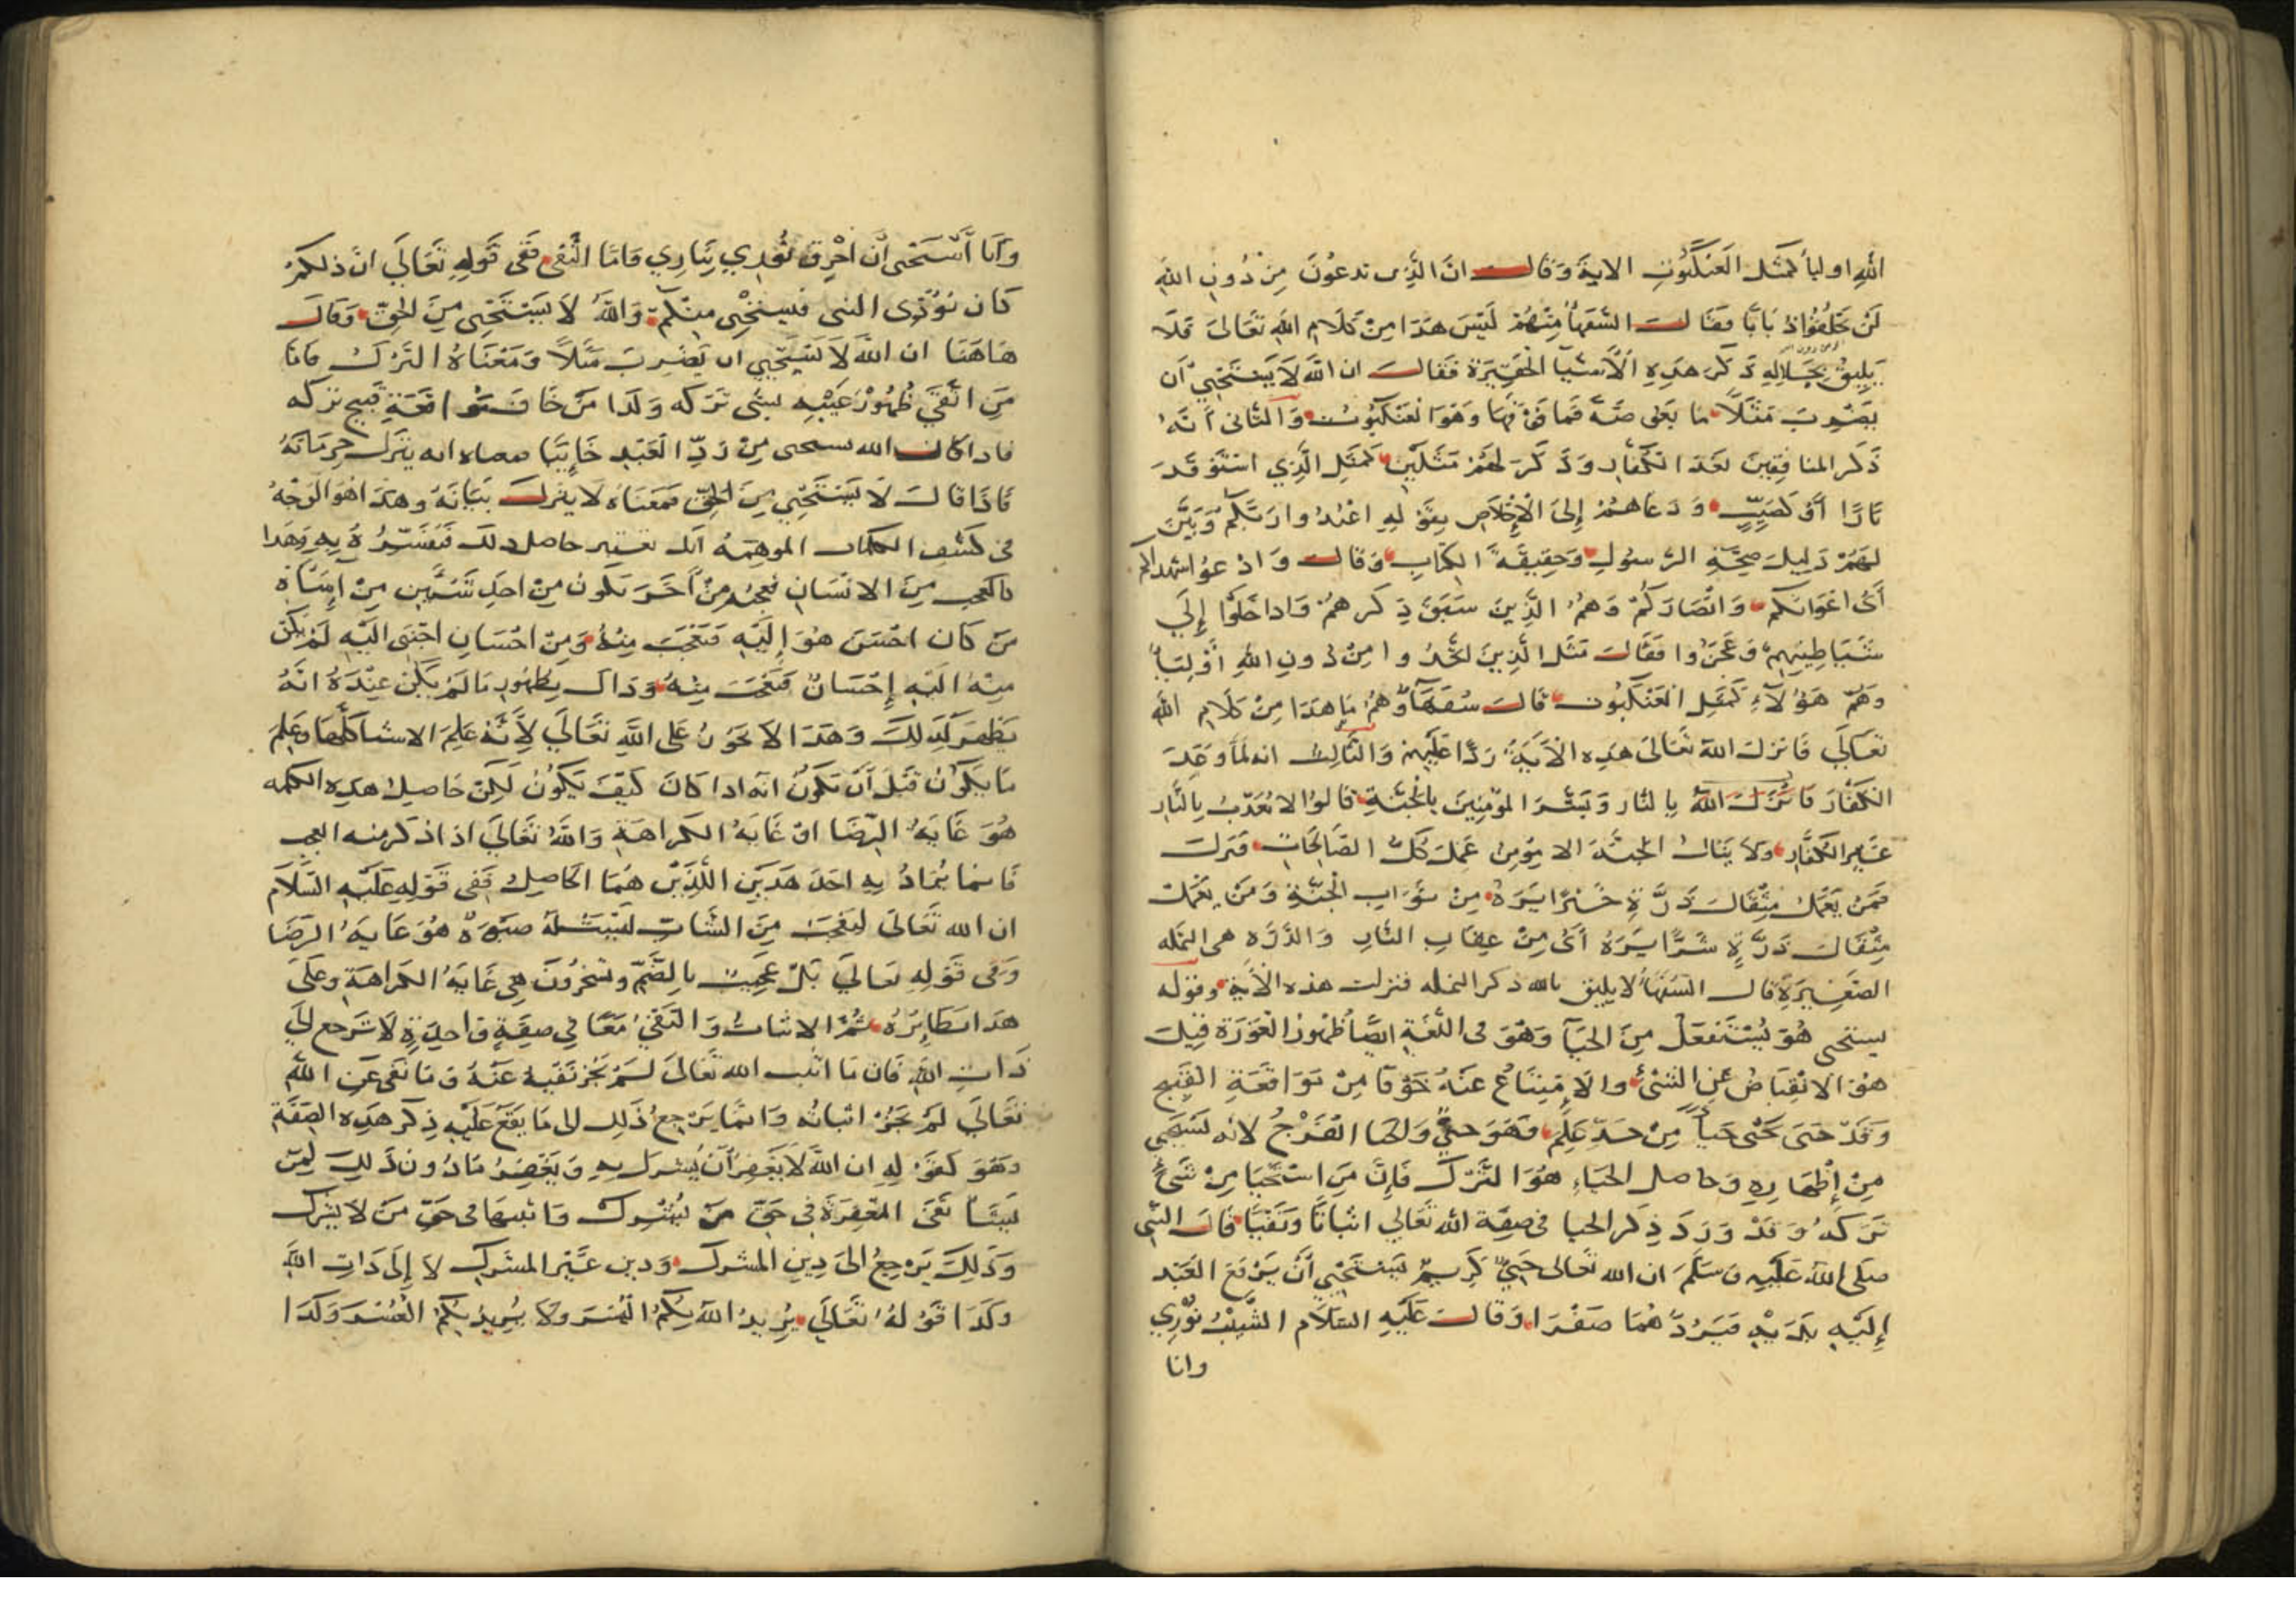 الله اوليأ كمثل العنكبوت الاية وقال ان الذين تدعون من دون الله
لن يخلقوا ذبابا فقالت السفهأ منهم ليس هذا من كلام الله تعالى فلا
يليق بجلاله ذكر هذه الأشيا الحقيرة فقال ان الله لا يستحيي أن
يضرب مثلا ما يعنى فما فوقها وهو العنكبوت والثانى أنه
ذكر المنافقين بعد الكفار وذكر لهم مثلين كمثل الذي استوقد
نارا أو كصيب ودعاهم إلى الإخلاص بقوله اعبدوا ربكم وبين
لهم دليل صحة الرسول وحقيقة الكتاب وقال وادعوا شهداكم
أى اعوانكم وانصاركم وهم الذين سبق ذكرهم واذا خلوا إلى
شياطينهم وعجزوا فقال مثل الذين اتخذوا من دون الله أوليأ
وهم هؤلآء كمثل العنكبوت قال سفهآؤهم ما هذا من كلام الله
تعالى فانزل الله تعالى هذه الأية ردا عليهم والثالث انه لما وعد
الكفار بالنار وبشر المؤمنين بالجنة قالوا لا نعذب بالنار
غير الكفار ولا ينال الجنة الا مؤمن عمل كل الصالحات فنزل
فمن يعمل مثقال ذرة خيرا يره من ثواب الجنة ومن يعمل
مثقال ذرة شرا يره أى من عقاب النار والذره هى النمله
الصغيرة قال السفهأ لا يليق بالله ذكر النمله فنزلت هذه الأية وقوله
يستحى هو يستفعل من الحيآ وهو فى اللغة ايضا ظهور العورة قيل
هو الانقباض عن الشئ والامتناع عنه خوفا من مواقعة القبيح
وقد حيى يحيى حيأ من حد علم فهو حي والحيا الفرج لانه يستحى
من إظهاره وحاصل الحياء هو الترك فإن من استحيا من شئ
تركه وقد ورد ذكر الحيا فى صفة الله تعالى اثباتا ونفيا قال النبى
صلى الله عليه وسلم ان الله تعالى حيي كريم يستحيي أن يرفع العبد
إليه يديه فيردهما صفرا وقال عليه السلام الشيب نوري
وانا
وأنا أستحى أن احرق نوري بناري وأما النفى ففى قوله تعالى ان ذلكم
كان يؤذى النبى فيستحيى منكم والله لا يستحيى من الحق وقال
هاهنا ان الله لا يستحيي ان يضرب مثلا ومعناه الترك فان
من اتقى ظهور عيبه بشئ تركه وكذا من خاف مواقعة قبيح تركه
فاذا كان الله يستحى من رد العبد خايبا معناه انه يترك حرمانه
فاذا قال لا يستحيي من الحق فمعناه لا يترك بيانه وهذا هو الوجه
فى كشف الكلمات الموهمة انك تعتبر حاصل ذلك فتفسره به وهذا
كالعجب من الانسان تعجبه من آخر يكون من احد شيئين من إساة
من كان احسن هو إليه فتعجب منه ومن احسان اجنبى اليه لم يكن
منه اليه إحسان فتعجب منه وذاك يظهور ما لم يكن عنده انه
يظهر كذلك وهذا لا يجوز على الله تعالى لأنه علم الاشيا كلها وعلم
ما يكون قبل أن يكون انه اذا كان كيف يكون لكن حاصل هذه الكلمه
هو غاية الرضا او غاية الكراهة والله تعالى اذا ذكر منه العجب
فانما يراد به احد هذين اللذين هما الحاصل ففى قوله عليه السلام
ان الله تعالى ليعجب من الشاب ليست له صبوة هو غاية الرضا
وفى قوله تعالى بل عجبت بالضم ويسخرون هى غاية الكراهة وعلى
هذا نظايره ثم الاثبات والنفى معا في صفة واحدة لا ترجع الى
ذات الله فان ما اثبت الله تعالى لم يجز نفيه عنه وما نفى عن الله
تعالى لم يجز اثباته وانما يرجع ذلك الى ما يقع عليه ذكر هذه الصفة
وهو كقوله ان الله لا يغفر أن يشرك به ويغفر ما دون ذلك لمن
يشأ نفى المغفرة في حق من يشرك واثبتها فى حق من لا يشرك
وذلك يرجع الى دين المشرك ودين غير المشرك لا إلى ذات الله
وكذا قوله تعالى يريد الله بكم اليسر ولا يريد بكم العسر وكذا